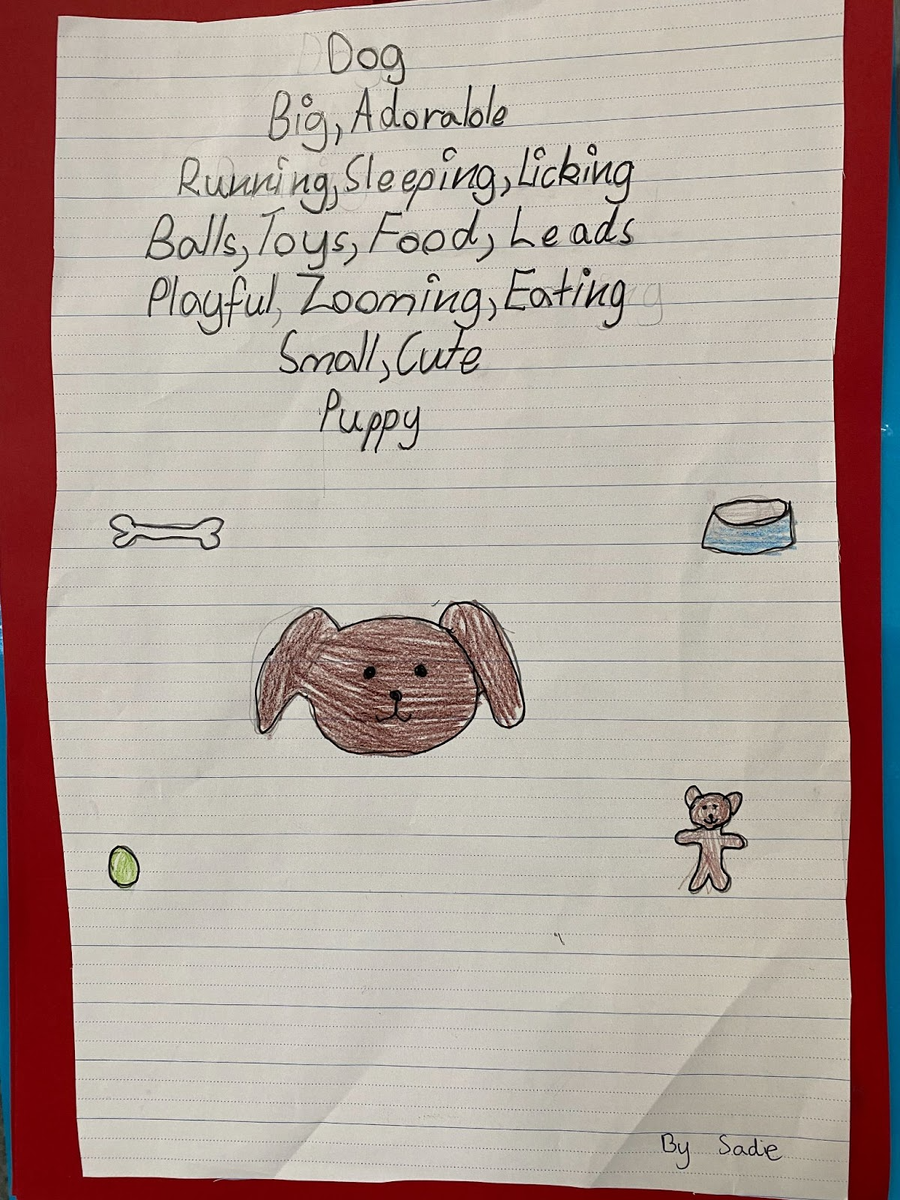 Dog
Big, Adorable
Running, Sleeping, Licking
Balls, Toys, Food, Leads
Playful, Zooming, Eating
Small, Cute
Puppy
By Sadie